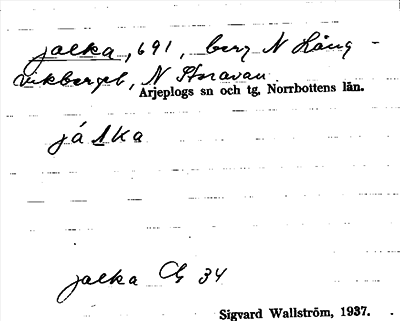 jalka, 691, berg N Lång-
viksberget, N Storavan.
Arjeplogs sn och tg, Norrbottens län.
jálka
jalka G 34
Sigvard Wallström, 1937.